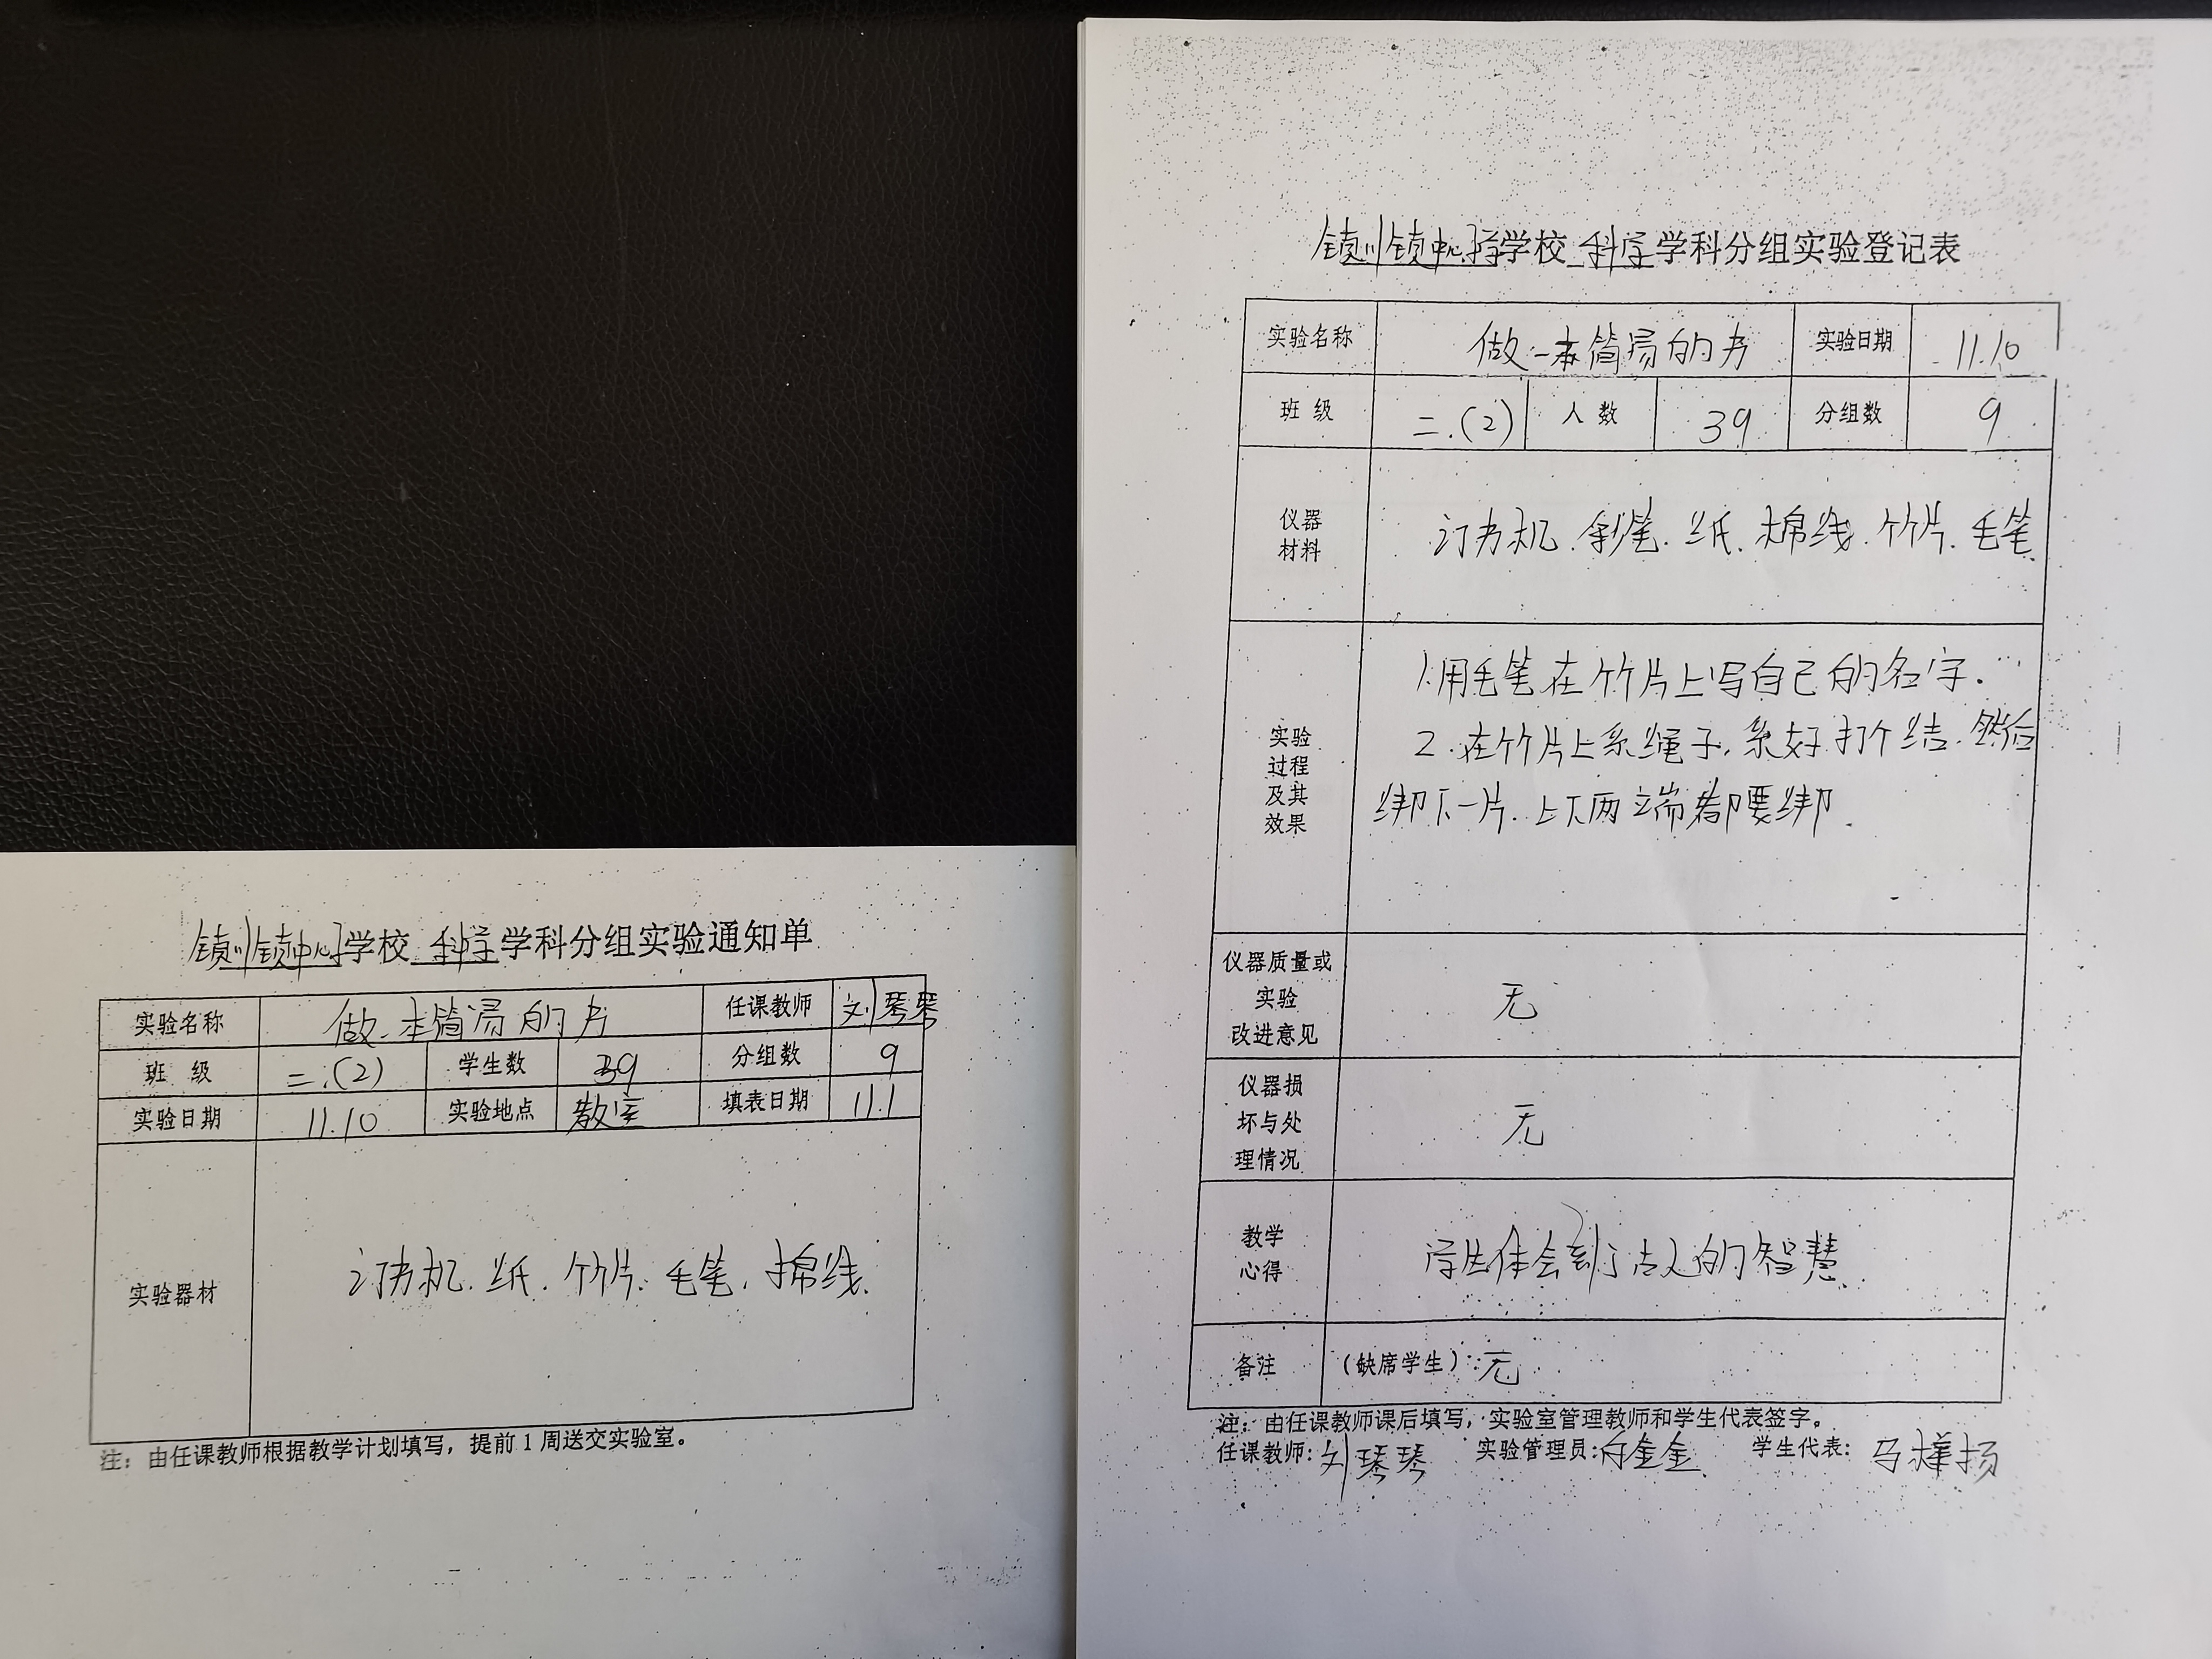 镇川镇中心小学学校 科学 学科分组实验通知单
实验名称 做一本简易的书 任课教师 刘琴琴
班 级 二.(2) 学生数 39 分组数 9
实验日期 11.10 实验地点 教室 填表日期 11.1
实验器材 订书机.纸.竹片.毛笔.棉线.
注：由任课教师根据教学计划填写，提前1周送交实验室。
镇川镇中心小学学校 科学 学科分组实验登记表
实验名称 做一本简易的书 实验日期 11.10
班 级 二.(2) 人 数 39 分组数 9
仪器
材料
订书机.彩笔.纸.棉线.竹片.毛笔.
实验
过程
及其
效果
1.用毛笔在竹片上写自己的名字.
2.在竹片上系绳子,系好打个结.然后
绑下一片.上下两端都要绑.
仪器质量或
实验
改进意见
无
仪器损
坏与处
理情况
无
教学
心得
学生体会到了古人的智慧.
备注 (缺席学生):无
注：由任课教师课后填写，实验室管理教师和学生代表签字。
任课教师:刘琴琴 实验管理员: 学生代表: